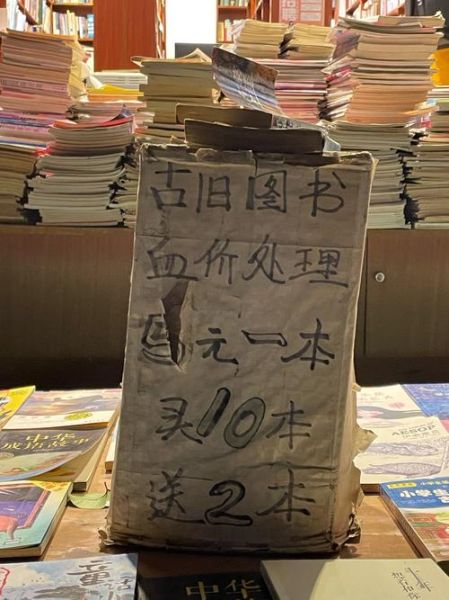 古旧图书
血价处理
元一本
买10本
送2本
中华
成语故事
AESOP
小学生
中华